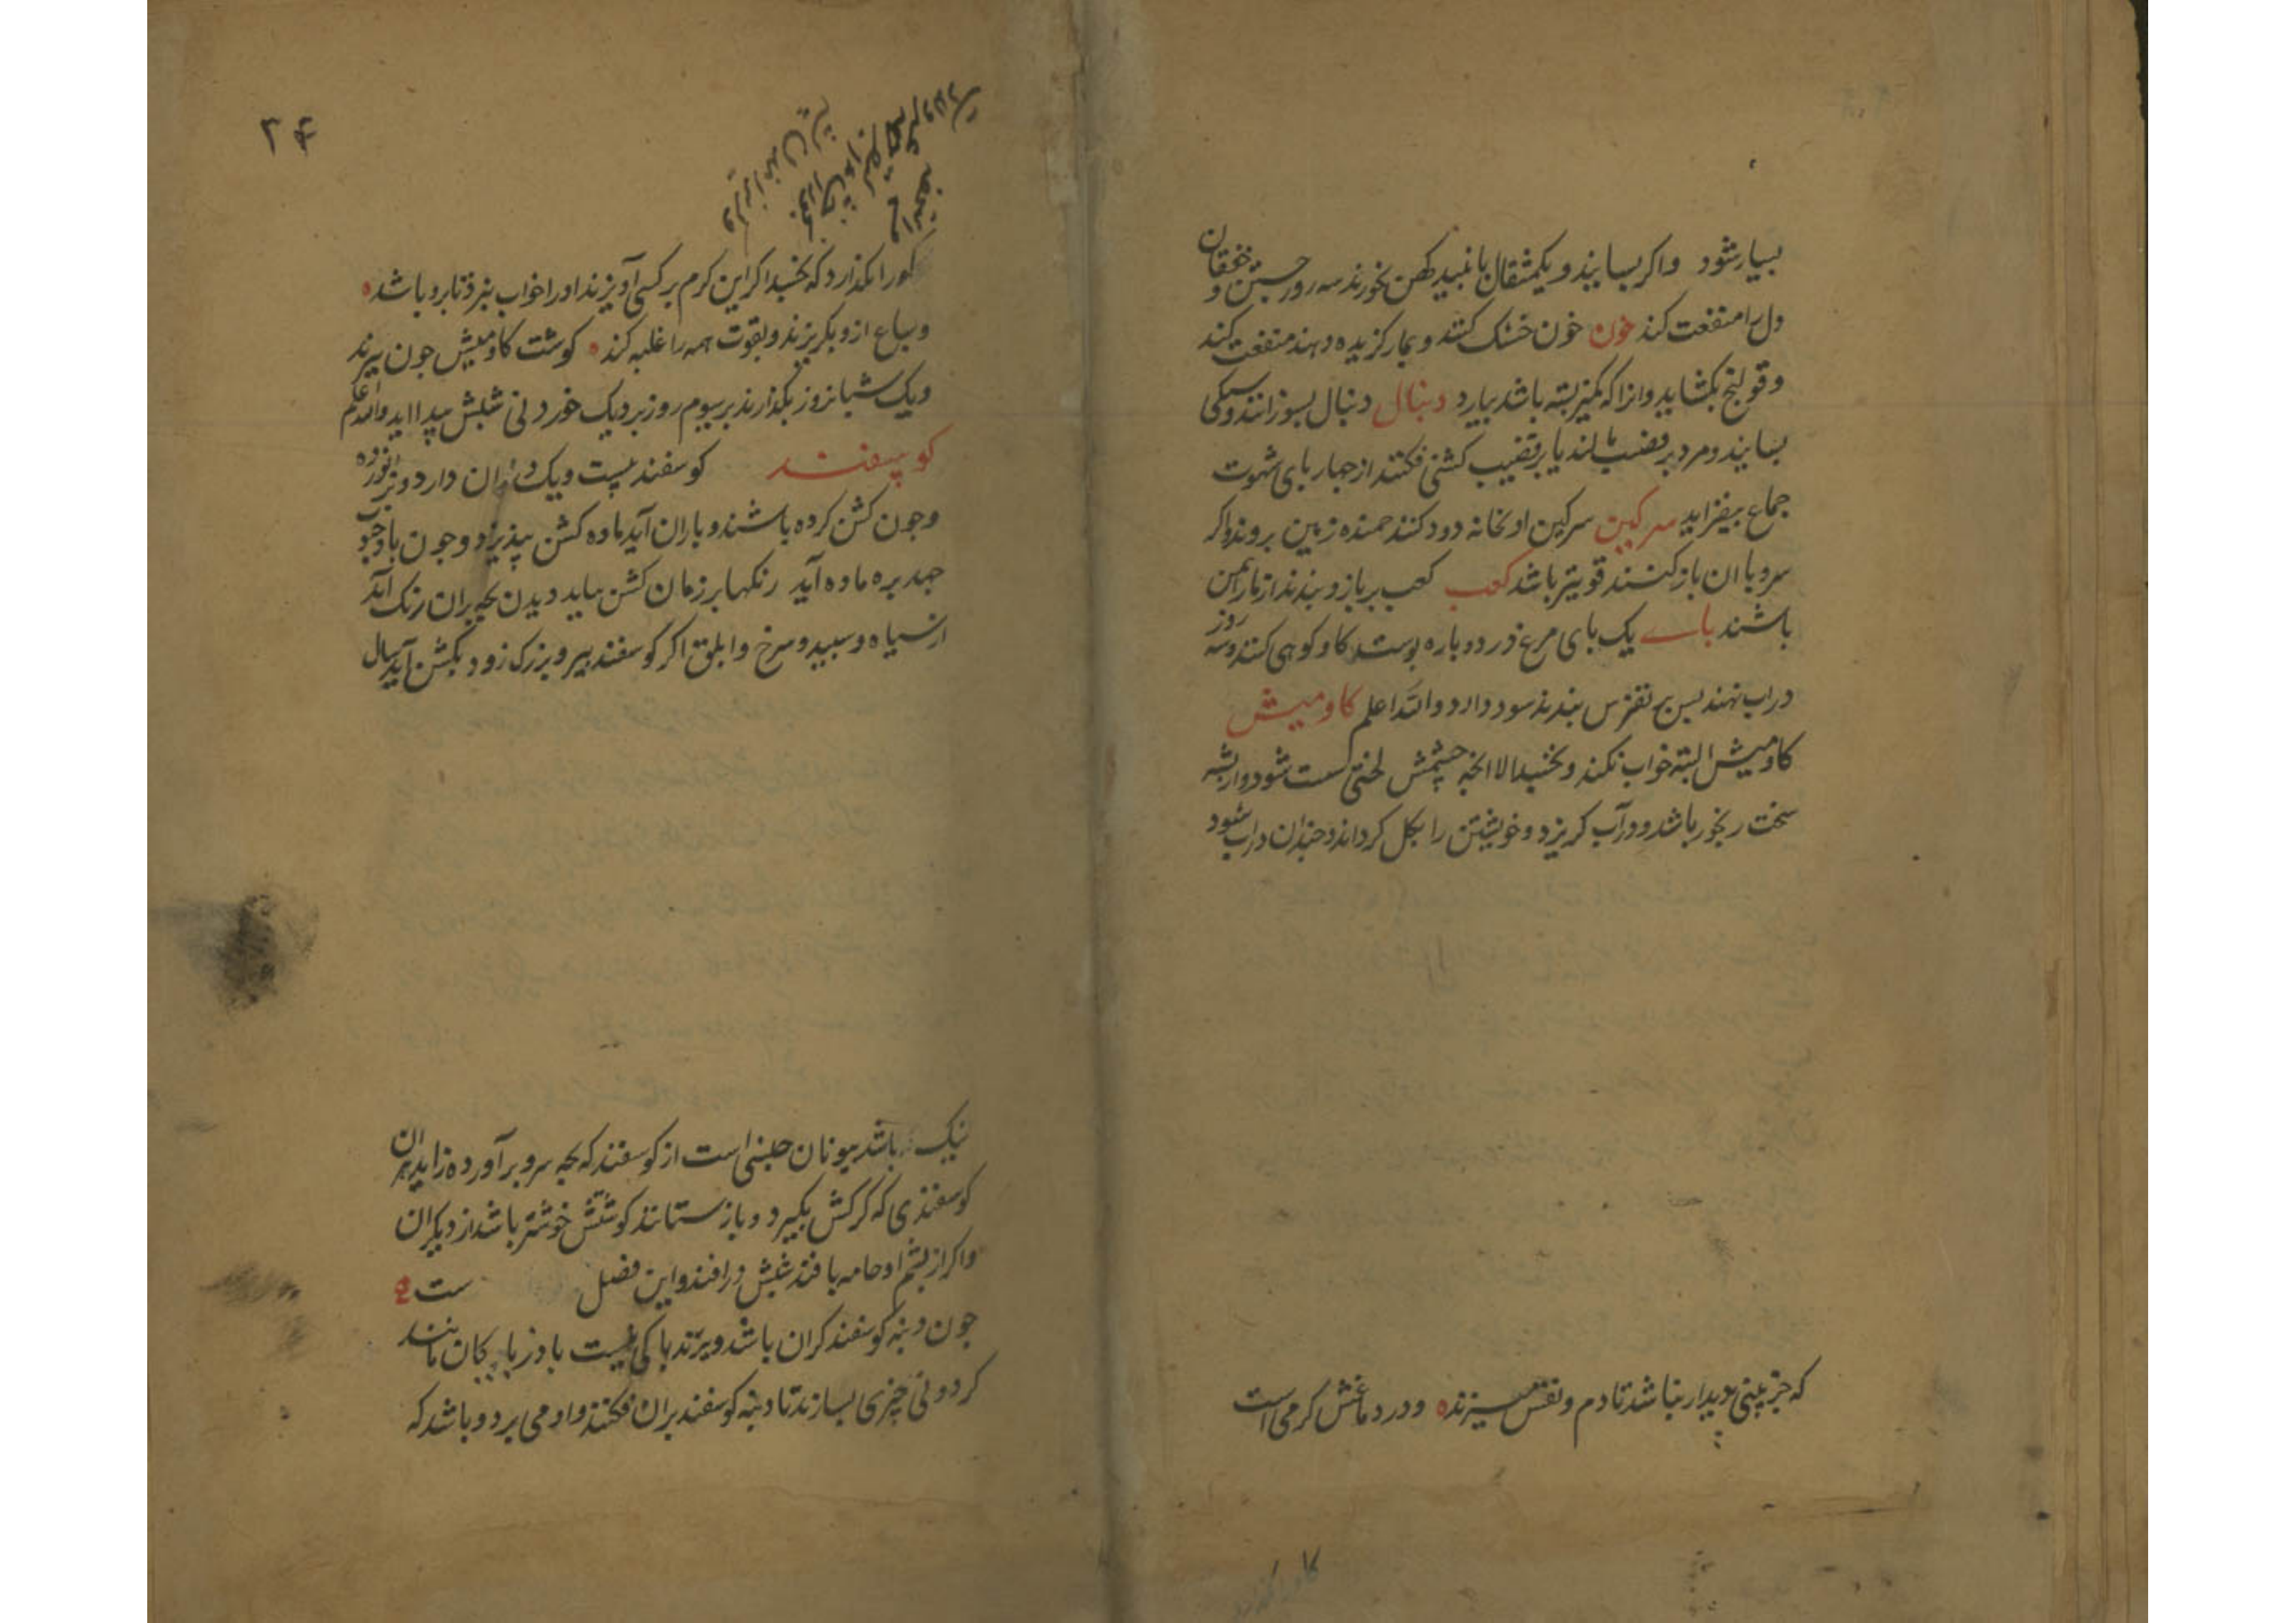 بسیار شود واکر بسایند و یکمثقال با نبید کهن بخورند سه روز جستن و خفقان
دل را منفعت کند خون خون خشک کنند و بمار کزیده دهند منفعت کند
و قولنج بکشاید وانرا که کمیز بسته باشد بیارد دنبال دنبال بسوزانند و بسیکی
بسایند و مرد بر قضیب مالند یا بر قضیب کشنی فکنند از جهاربای شهوت
جماع بیفزاید سرکین سرکین او بخانه دود کنند جمنده زمین بروند واکر
سرو با ان باز کنند قویتر باشد کعب کعب بر بازو بندند از مار ایمن
باشند بای یک بای مرغ در دو باره بوست کاو کوهی کنند و سه روز
در اب نهند بس بر نقرس بندند سود دارد والله اعلم کاومیش
کاومیش البته خواب نکند و نخسبد الا انجه چشمش لختی سست شود و از بشه
سخت رنجور باشد و در آب کریزد و خویشتن را بکل کرداند و جندان در اب شود
که جز بینی بدیدار نباشد تا دم و نفس میزند ه و در دماغش کرمی است
۲۴
کورا نکذارد که بخسبد اکر این کرم بر کسی آویزند او را خواب نبرد تا برو باشد ه
و سباع ازو بکریزند و بقوت همه را غلبه کند ه کوشت کاومیش جون ببرند
و یک شبانروز بکذارند بر سیوم روز بر دیک خوردنی شبش بیدا اید والله اعلم
کوسفند کوسفند بیست و یک دندان دارد و نر
وجون کشن کرده باشند و باران آید ماده کشن نپذیرد و جون باد جنوب
جهد بره ماده آید رنکها بر زمان کشن بباید دیدن بجه بران رنک آید
از سیاه و سبید و سرخ و ابلق اکر کوسفند بیر و بزرک زود بکشن آید سال
نیک باشد بیونان جنسی است از کوسفند که بجه سرو برآورده زاید
کوسفندی که کرکش بکیرد و باز ستانند کوشتش خوشتر باشد از دیکران
واکر از بشم او جامه بافند شبش در افتد و این فصل ست
جون دنبه کوسفند کران باشد و برند باکی نیست باذربایکان مانند
کردونی چیزی بسازند تا دنبه کوسفند بران فکنند و او می برد و باشد که